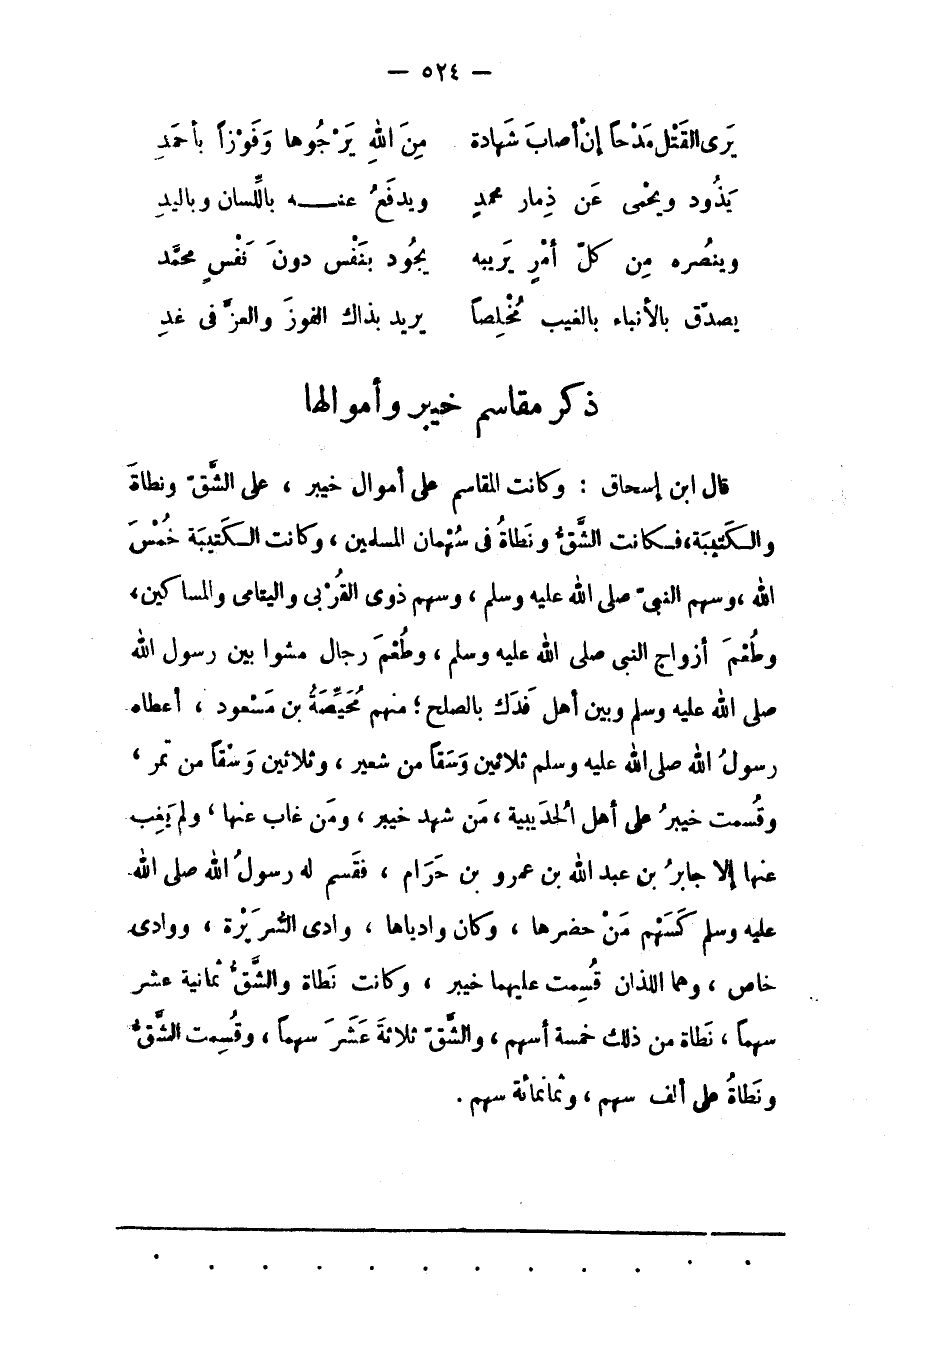 — ٥٢٤ —
يَرى القَتْل مَدْحاً إنْ أصابَ شَهادة مِنَ اللهِ يَرْجُوها وَفَوْزاً بأحمَدِ
يَذُود ويحْمى عَن ذِمار محمدٍ ويدفَعُ عنـــه باللِّسان وباليدِ
وينصُره مِن كلّ أمْرٍ يَريبه يجُود بنَفْس دونَ نَفْسٍ محمَّد
يصدّق بالأنباء بالغيب مُخْلِصاً يريد بذاك الفوزَ والعزَّ فى غدِ
ذكر مقاسم خيبر وأموالها
قال ابن إسحاق : وكانت المقاسم على أموال خيبر ، على الشَّقّ ونطاةَ
والكَتيبَة، فكانت الشَّقُّ ونَطاةُ فى سُهْمان المسلمين ، وكانت الكَتيبَة خُمْسَ
الله ، وسهم النبىّ صلى الله عليه وسلم ، وسهم ذوى القُرْبى واليتامى والمساكين ،
وطُعْمَ أزواج النبى صلى الله عليه وسلم ، وطُعْمَ رجال مشوا بين رسول الله
صلى الله عليه وسلم وبين أهل فَدَك بالصلح ؛ منهم مُحَيِّصَةُ بن مَسْعود ، أعطاه
رسولُ الله صلى الله عليه وسلم ثلاثين وَسَقاً من شعير ، وثلاثين وَسْقاً من تمر ،
وقُسمت خيبرُ على أهل الحُدَيبية ، مَن شهد خيبر ، ومَن غاب عنها ، ولم يَغِب
عنها إلا جابرُ بن عبد الله بن عمرو بن حَرَام ، فقَسم له رسولُ الله صلى الله
عليه وسلم كَسَهْم مَنْ حضرها ، وكان وادياها ، وادى السُّرَيْرة ، ووادى
خاص ، وهما اللذان قُسِمت عليهما خيبر ، وكانت نَطاة والشَّقُّ ثمانية عشر
سهماً ، نَطاة من ذلك خمسة أسهم ، والشَّقّ ثلاثةَ عَشَرَ سهماً ، وقُسِمت الشَّقُّ
ونَطاةُ على ألف سهم ، وثمانمائة سهم .